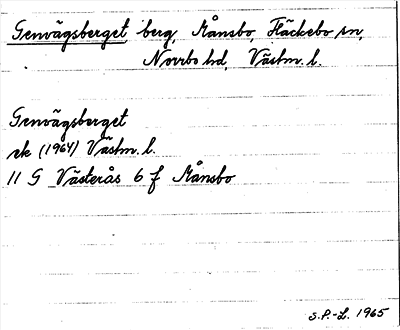 Genvägsberget, berg, Månsbo, Fläckebo sn,
Norrbo hd, Västm. l.
Genvägsberget
ek (1964) Västm. l.
11 G Västerås 6 f Månsbo
S.P.-L. 1965